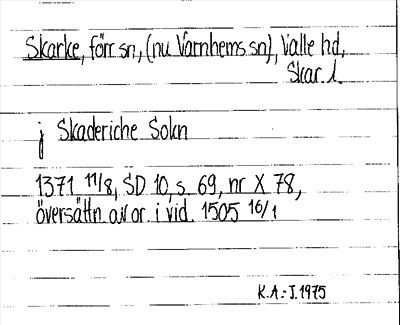 Skarke, förr sn, (nu Varnhems sn), Valle hd,
Skar. l.
j Skaderiche Sokn
1371 11/8, SD 10, s. 69, nr X 78,
översättn. av or. i vid. 1505 16/1
K.A.-J. 1975